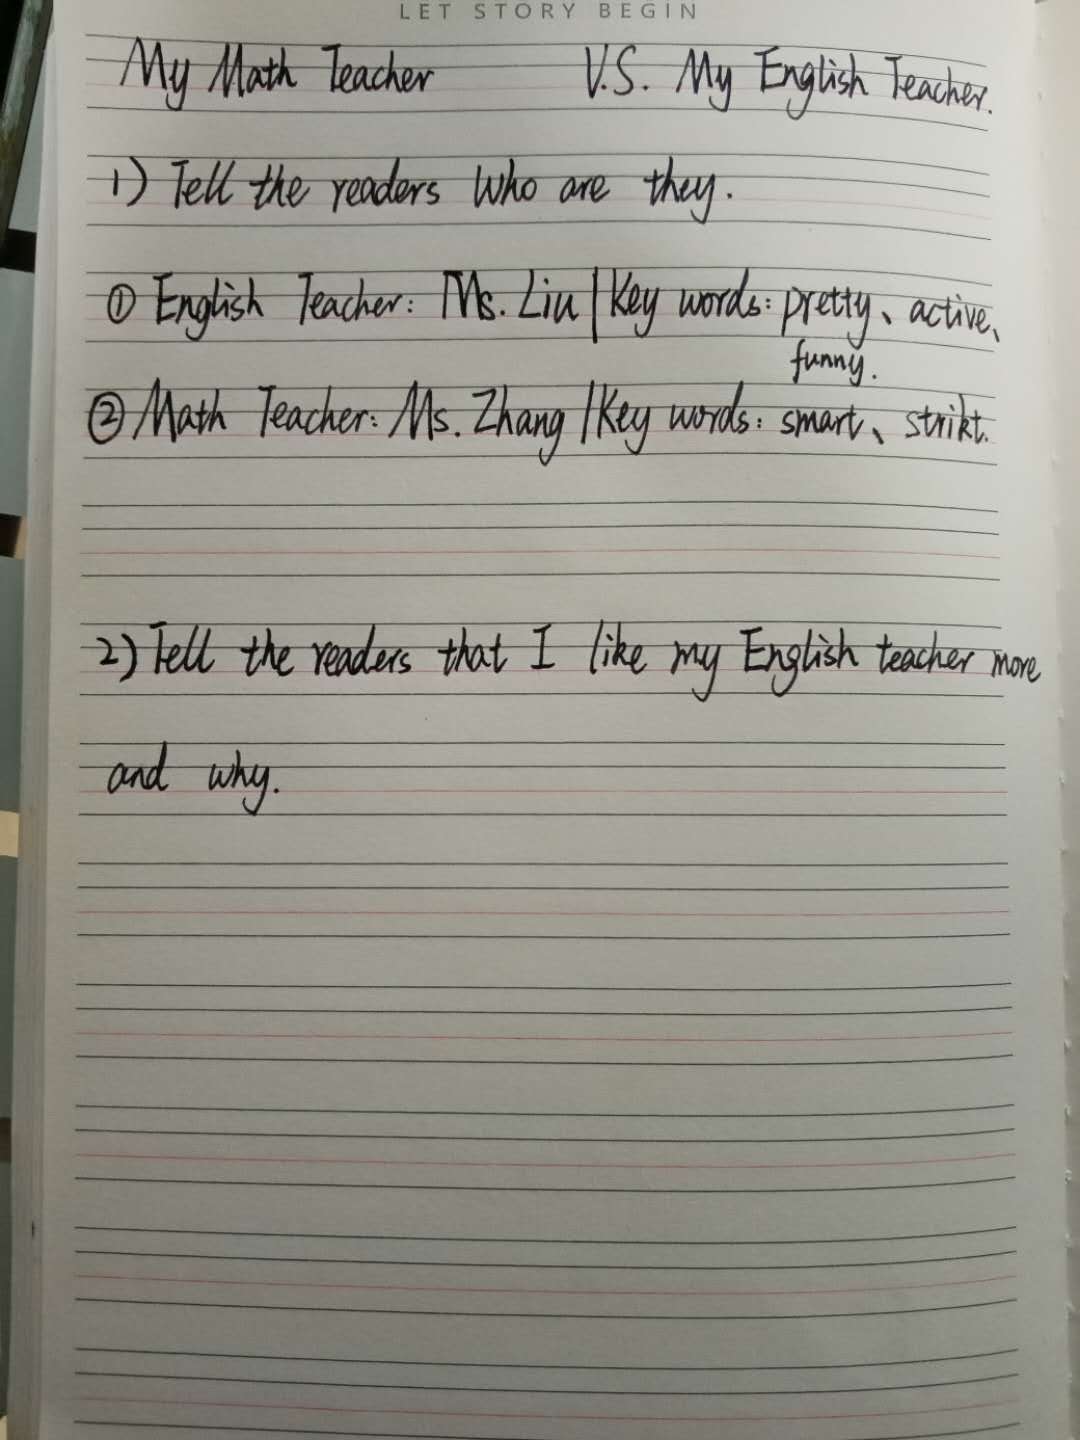 LET STORY BEGIN
My Math Teacher V.S. My English Teacher.
1) Tell the readers who are they.
① English Teacher: Ms. Liu | Key words: pretty、active、
funny.
② Math Teacher: Ms. Zhang | Key words: smart、strikt.
2) Tell the readers that I like my English teacher more
and why.